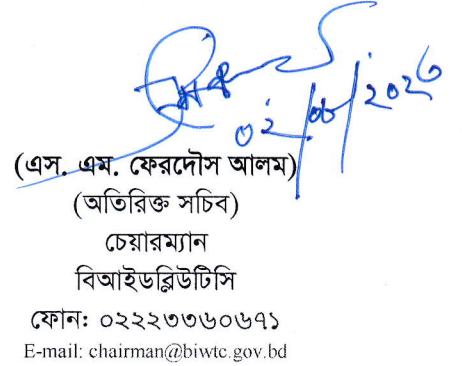 (এস. এম. ফেরদৌস আলম)
(অতিরিক্ত সচিব)
চেয়ারম্যান
বিআইডব্লিউটিসি
ফোন: ০২২২৩৩৬০৬৭১
E-mail: chairman@biwtc.gov.bd